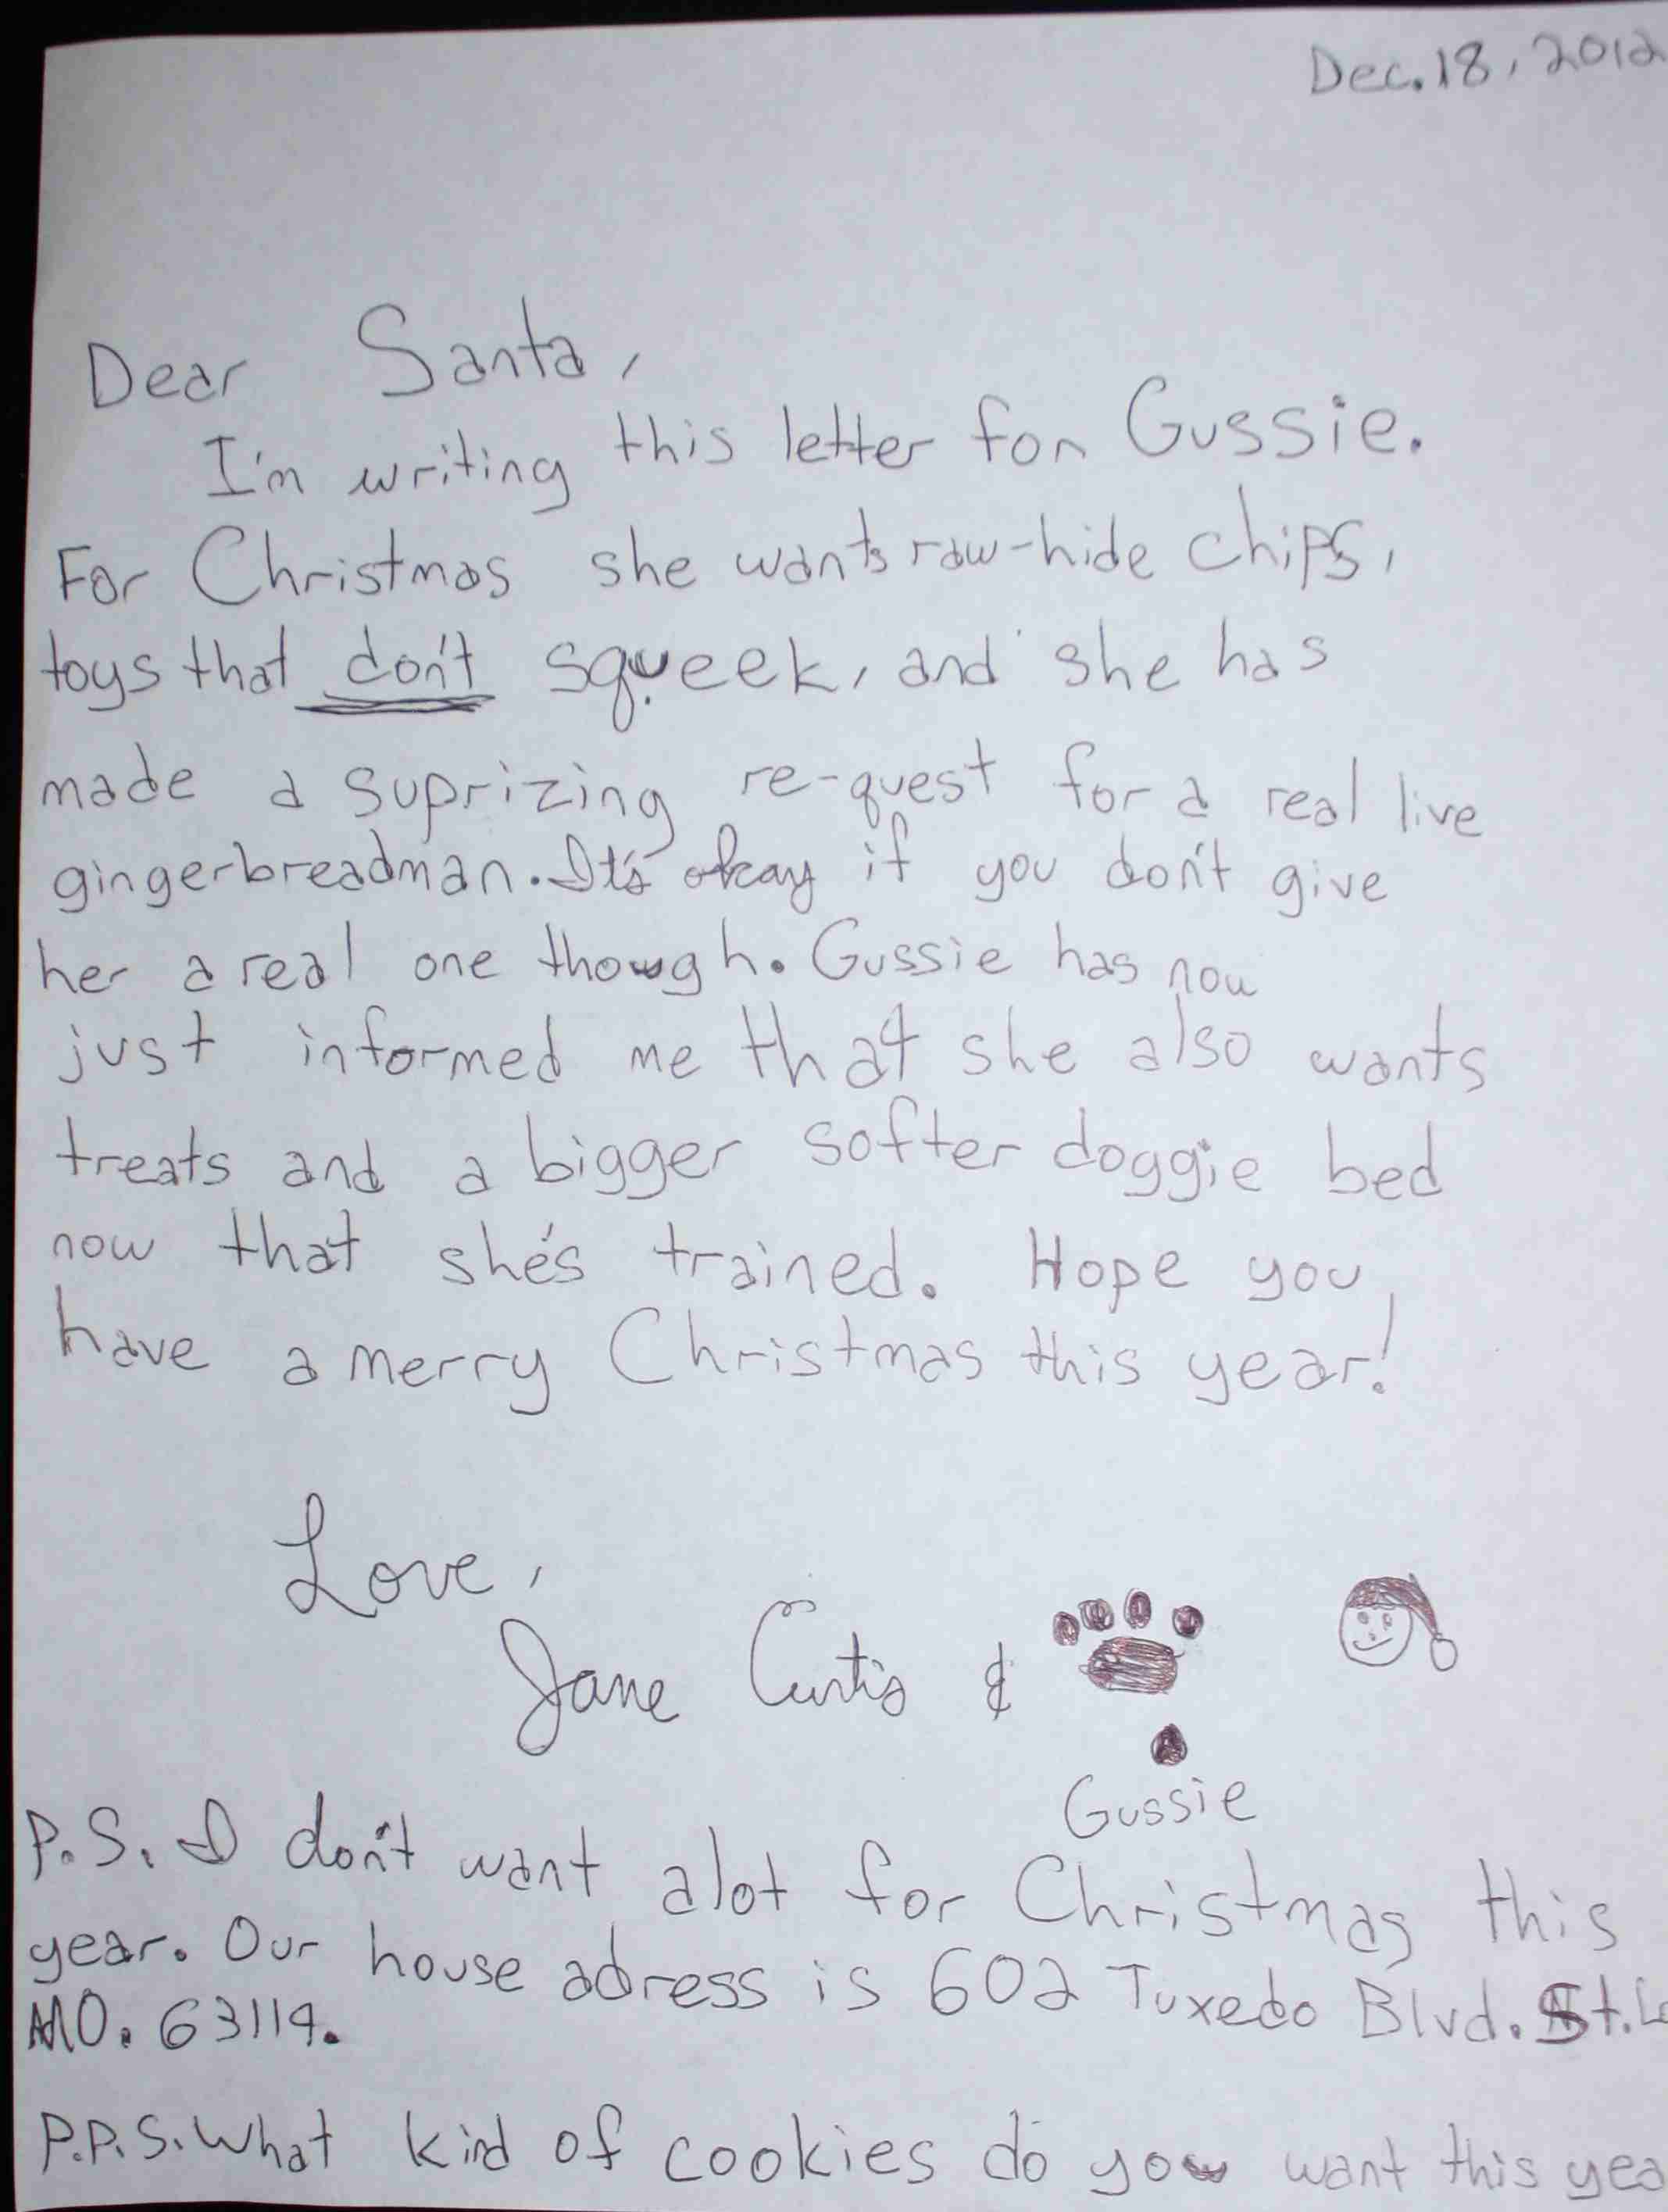 Dec. 18, 2012
Dear Santa,
I'm writing this letter for Gussie.
For Christmas she wants raw-hide chips,
toys that don't squeek, and she has
made a suprizing re-quest for a real live
gingerbreadman. It's okay if you don't give
her a real one though. Gussie has now
just informed me that she also wants
treats and a bigger softer doggie bed
now that she's trained. Hope you
have a merry Christmas this year!
Love,
Jane Curtis &
Gussie
P.S. I don't want alot for Christmas this
year. Our house adress is 602 Tuxedo Blvd. St.
MO. 63119.
P.P.S. What kind of cookies do you want this